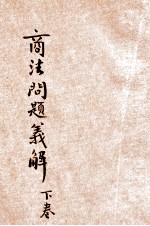 商法問題義解
下巻